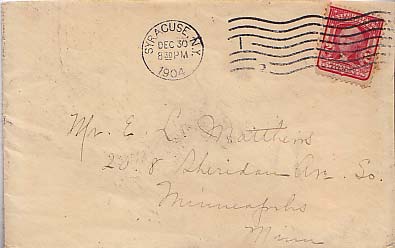 SYRACUSE, N.Y.
DEC 30
8 30 PM
1904
1
Mr. E. L. Matthews
20.8 Sheridan Av. So.
Minneapolis
Minn